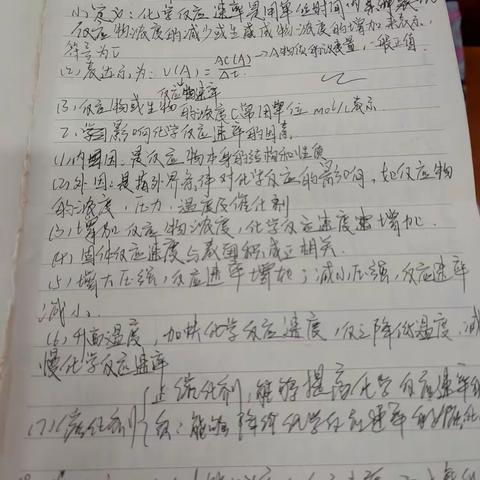 (1)定义:化学反应速率是用单位时间内
反应物浓度的减少或生成物浓度的增加来表示,
符号为v
(2)表达式为:V(A)=ΔC(A)/Δt →A物质的浓度量,一般正值
反应速率
(3)反应物或生物的浓度C常用单位mol/L表示.
2.影响化学反应速率的因素
(1)内因:是反应物本身的结构和性质
(2)外因:是指外界条件对化学反应的影响,如反应物
的浓度,压力,温度及催化剂
(3)增加反应物浓度,化学反应速度增加.
(4)固体反应速度与表面积成正相关.
(5)增大压强,反应速率增加;减小压强,反应速率
减小.
(6)升高温度,加快化学反应速度,反之降低温度,减
慢化学反应速率
(7)催化剂{正催化剂,能够提高化学反应速率
负:能够降低化学反应速率的催化